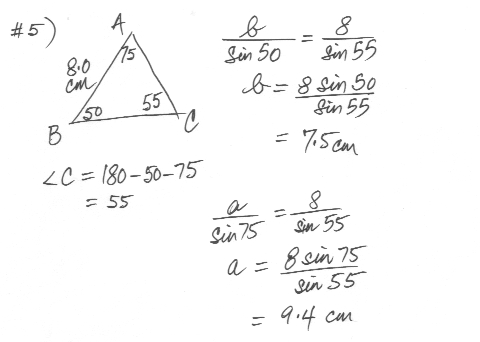 #5)
A
75
8.0
cm
50
55
B
C
∠C = 180-50-75
= 55
b/sin 50 = 8/sin 55
b = 8 sin 50/sin 55
= 7.5 cm
a/sin 75 = 8/sin 55
a = 8 sin 75/sin 55
= 9.4 cm